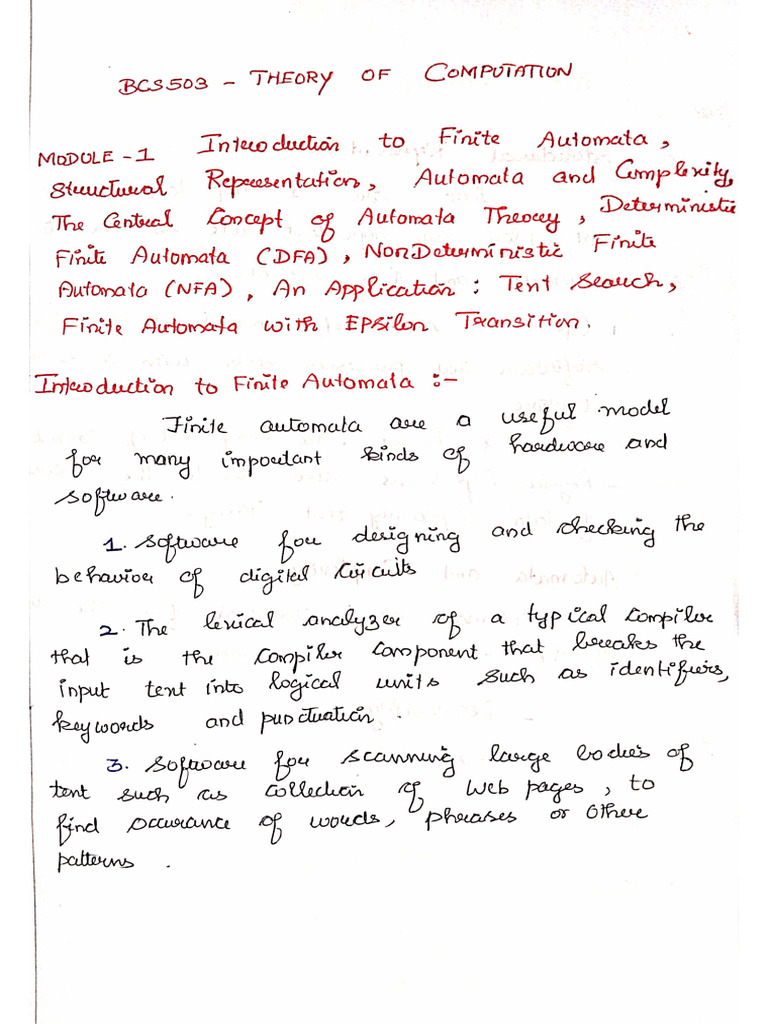 BCS503 - THEORY OF COMPUTATION
MODULE - 1 Introduction to Finite Automata,
Structural Representation, Automata and Complexity,
The Central Concept of Automata Theory, Deterministic
Finite Automata (DFA), NonDeterministic Finite
Automata (NFA), An Application : Text Search,
Finite Automata with Epsilon Transition.
Introduction to Finite Automata :-
Finite automata are a useful model
for many important kinds of hardware and
software.
1. Software for designing and checking the
behavior of digital Circuits
2. The lexical analyzer of a typical Compiler
that is the Compiler Component that breaks the
input text into logical units such as identifiers,
keywords and punctuation.
3. Software for scanning large bodies of
text such as Collection of Web pages, to
find occurance of words, phrases or other
patterns.